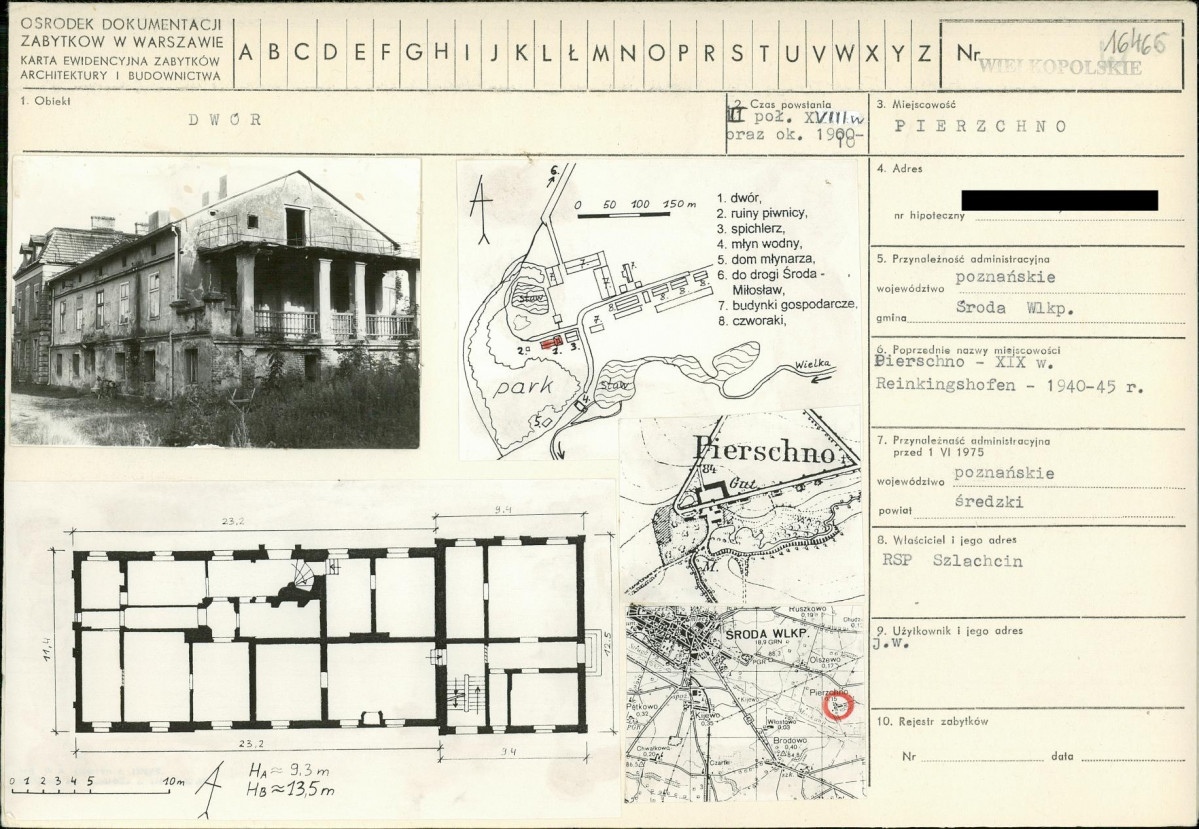 OSRODEK DOKUMENTACJI
ZABYTKOW W WARSZAWIE
KARTA EWIDENCYJNA ZABYTKÓW
ARCHITEKTURY I BUDOWNICTWA
A B C D E F G H I J K L Ł M N O P R S T U V W X Y Z
Nr 16465
WIELKOPOLSKIE
1. Obiekt
DWÓR
2. Czas powstania
II poł. XVIII w
oraz ok. 1900-
10
3. Miejscowość
PIERZCHNO
4. Adres
nr hipoteczny
5. Przynależność administracyjna
województwo poznańskie
gmina Środa Wlkp.
6. Poprzednie nazwy miejscowości
Pierschno - XIX w.
Reinkingshofen - 1940-45 r.
7. Przynależność administracyjna
przed 1 VI 1975
województwo poznańskie
powiat średzki
8. Właściciel i jego adres
RSP Szlachcin
9. Użytkownik i jego adres
J.w.
10. Rejestr zabytków
Nr data
6.
0 50 100 150 m
1. dwór,
2. ruiny piwnicy,
3. spichlerz,
4. młyn wodny,
5. dom młynarza,
6. do drogi Środa -
Miłosław,
7. budynki gospodarcze,
8. czworaki,
Staw
7.
7.
8.
8.
8.
7.
2.
1.
3.
park
Staw
Wielka
4.
5.
Pierschno
84
Gut.
M.
Ruszkowo
ŚRODA WLKP.
18,9 GRN
88,3
PGR
Olszewo
0,17
Pierzchno
Kijewo
Pętkowo
0,32
PGR
Włostowo
0,03
Brodowo
0,40
Chwałkowo
0,20
23,2
9.4
11,4
12.5
23,2
9.4
0 1 2 3 4 5 10m
HA ≈ 9.3 m
HB ≈ 13,5 m